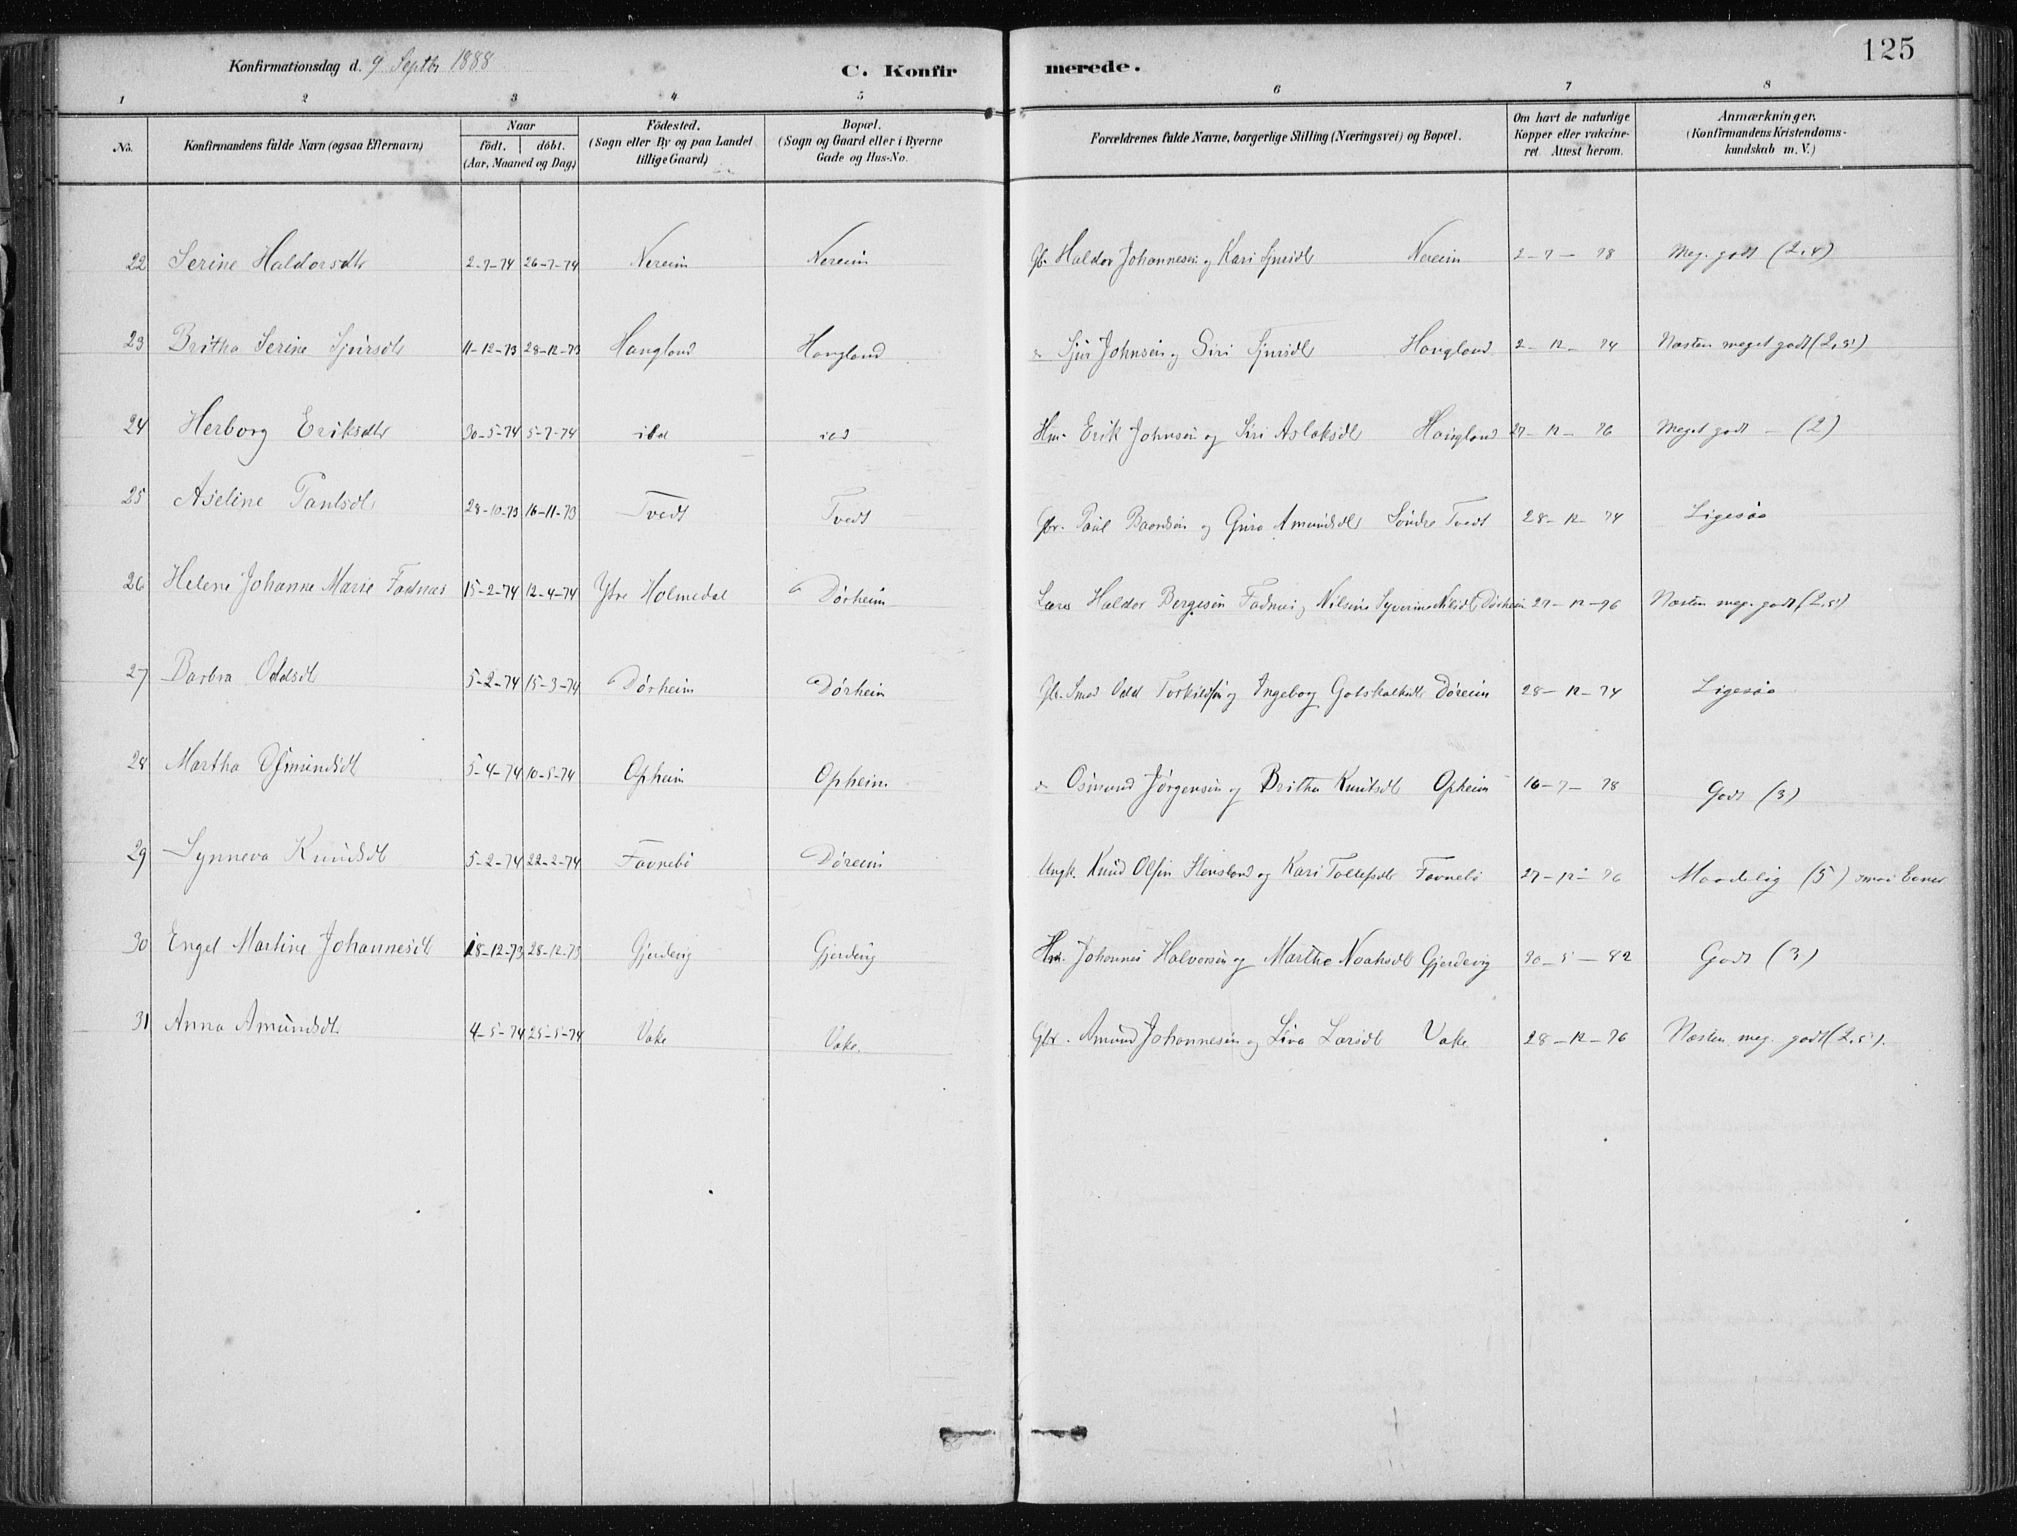 Konfirmationsdag d. 9 Septbr 1888
C. Konfirmerede.
125
1 2 3 4 5 6 7 8
No. Konfirmandens fulde Navn (ogsaa Efternavn) Naar födt. döbt. (Aar, Maaned og Dag) Födested. (Sogn eller By og paa Landet tillige Gaard) Bopæl. (Sogn og Gaard eller i Byerne Gade og Hus-No. Forældrenes fulde Navne, borgerlige Stilling (Næringsvei) og Bopæl. Om havt de naturlige Kopper eller vakcineret. Attest herom. Anmærkninger. (Konfirmandens Kristendomskundskab m. V.)
22 Serine Haldorsdtr 2-7-74 26-7-74 Nereim Nereim Gbr. Haldor Johannesen og Kari Sjursdtr Nereim 2-7-78 Meg. godt (2,4)
23 Britha Serine Sjursdtr 11-12-73 28-12-73 Haugland Haugland " Sjur Johnsen og Siri Sjursdtr Haugland 2-12-74 Næsten meget godt (2,5)
24 Herborg Eriksdtr 30-5-74 5-7-74 ibd ibd Hm. Erik Johnsen og Siri Aslaksdtr Haugland 27-12-76 Meget godt - (2)
25 Aseline Paulsdtr 28-10-73 16-11-73 Tvedt Tvedt Gbr. Paul Baardsen og Guro Amundsdtr Söndre Tvedt 28-12-74 Ligesaa
26 Helene Johanne Marie Fadnæs 15-2-74 12-4-74 Ytre Holmedal Dørheim Lærer Haldor Bergesen Fadnæs og Nilsine Syverine Nilsdtr Dørheim 27-12-76 Næsten meg. godt (2,5)
27 Barbra Oddsdt 5-2-74 15-3-74 Dørheim Dørheim Gbr. Smed Odd Torkildsen og Ingeborg Gotskalksdtr Døreim 28-12-74 Ligesaa
28 Martha Osmundsdt 5-4-74 10-5-74 Opheim Opheim " Osmund Jørgensen og Britha Knutsdt Opheim 16-7-78 Godt (3)
29 Synneva Knudsdt 5-2-74 22-2-74 Favnebö Döreim Ungk. Knud Olsen Stensland og Kari Tollefsdtr Favnebö 27-12-76 Maadelig (5) smaa Evner
30 Engel Martine Johannesdt 18-12-73 28-12-73 Gjerdevig Gjerdevig Hm. Johannes Halvorsen og Martha Noahsdt Gjerdevig 30-5-82 Godt (3)
31 Anna Amundsdtr 4-5-74 25-5-74 Vake Vake. Gbr. Amund Johannesen og Siva Larsdt Vake 28-12-76 Næsten meg. godt (2,5).